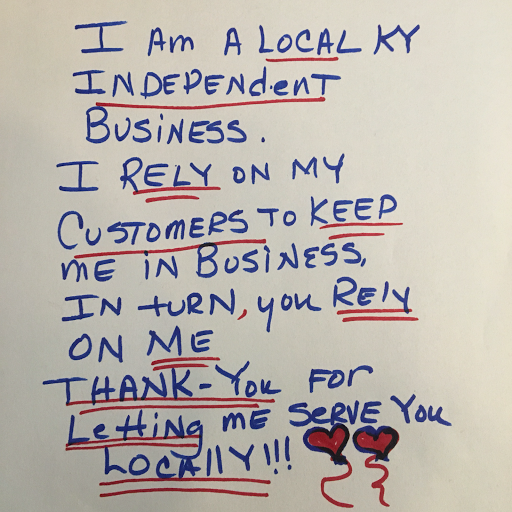 I Am A LOCAL KY
INDEPENdenT
BUSiNESS.
I RELY ON MY
CUSTOMERS TO KEEP
mE iN BUSiNESS,
IN tURN, you REly
ON ME
THANK-You FOr
LettiNg mE SERVE You
LOCAllY!!!